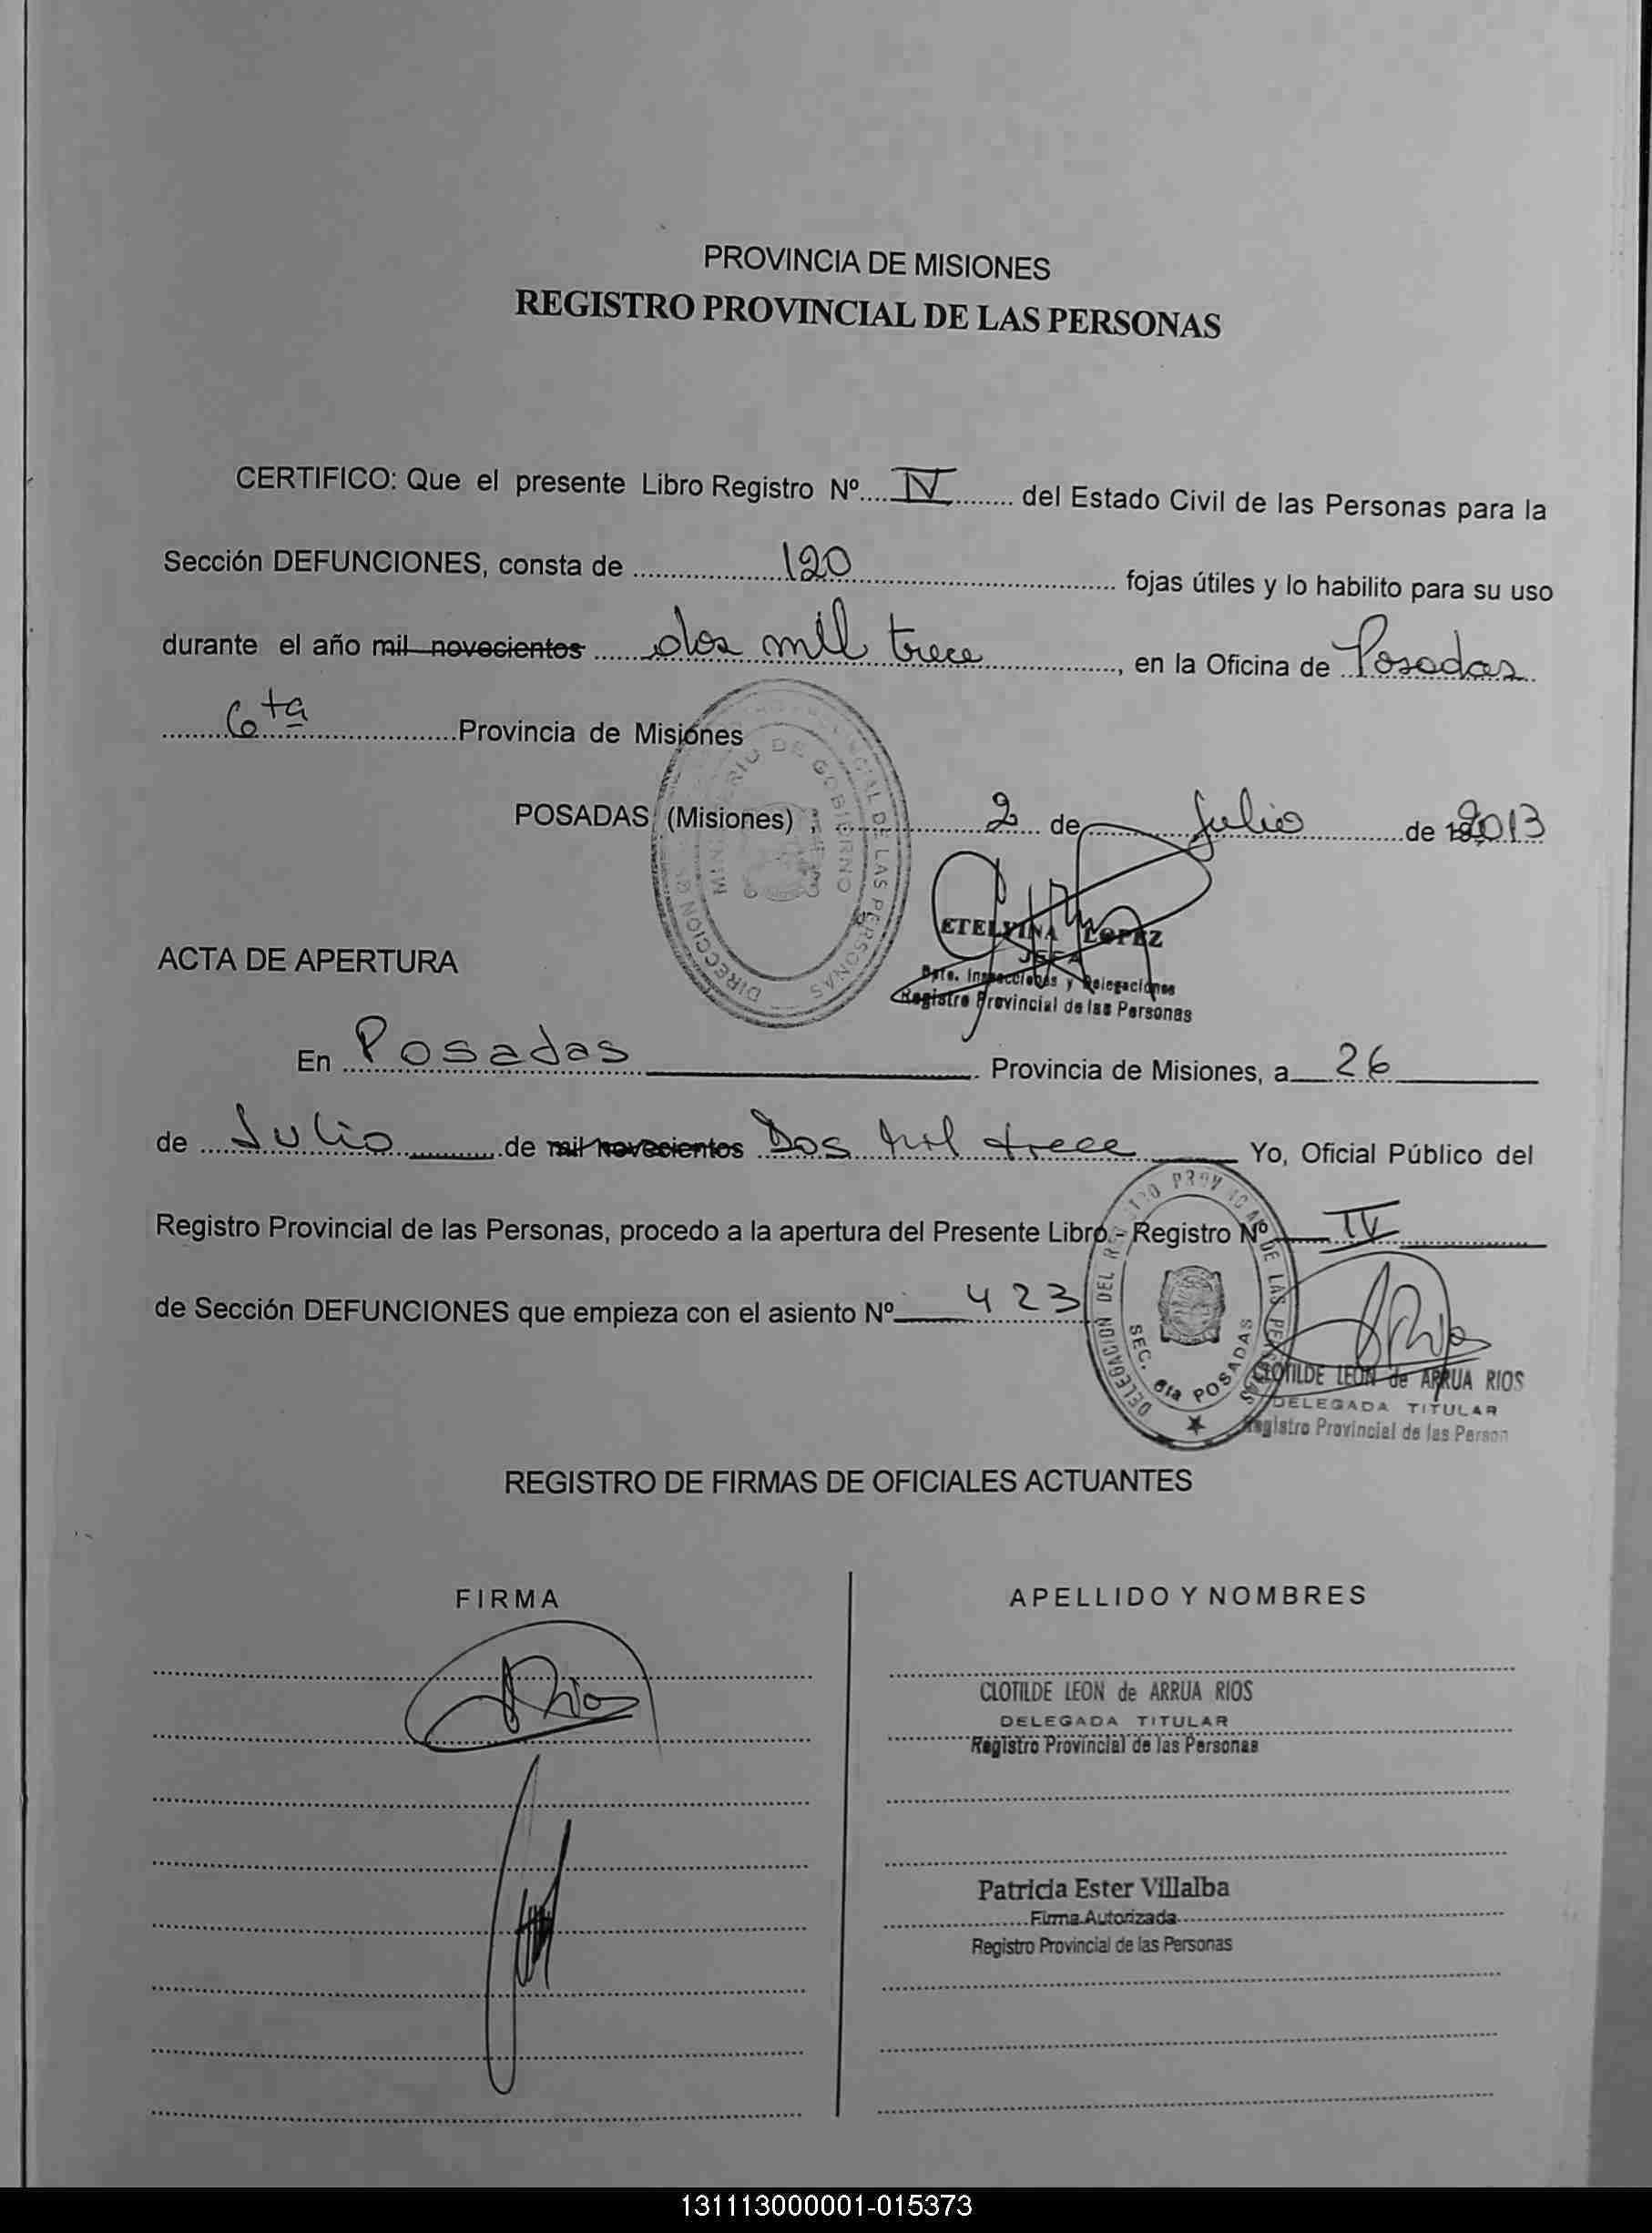 PROVINCIA DE MISIONES
REGISTRO PROVINCIAL DE LAS PERSONAS
CERTIFICO: Que el presente Libro Registro Nº.... IV ........ del Estado Civil de las Personas para la
Sección DEFUNCIONES, consta de ........ 120 ........ fojas útiles y lo habilito para su uso
durante el año mil novecientos ...... dos mil trece ............., en la Oficina de Posadas
........ 6ta ....................Provincia de Misiones
POSADAS (Misiones) , ............ 2 .... de ........ Julio ..........de 2013
DIRECCION
PROVINCIAL DE LAS PERSONAS
MINISTERIO DE GOBIERNO
ETELVINA LOPEZ
JEFA
Dpto. Inspecciones y Delegaciones
Registro Provincial de las Personas
ACTA DE APERTURA
En Posadas . Provincia de Misiones, a 26
de Julio de mil novecientos Dos Mil trece Yo, Oficial Público del
Registro Provincial de las Personas, procedo a la apertura del Presente Libro.- Registro Nº IV
de Sección DEFUNCIONES que empieza con el asiento Nº 423
DELEGACION DEL REGISTRO PROVINCIAL DE LAS PERSONAS
SEC. 6ta POSADAS
CLOTILDE LEON de ARRUA RIOS
DELEGADA TITULAR
Registro Provincial de las Person
REGISTRO DE FIRMAS DE OFICIALES ACTUANTES
FIRMA
APELLIDO Y NOMBRES
CLOTILDE LEON de ARRUA RIOS
DELEGADA TITULAR
Registro Provincial de las Personas
Patricia Ester Villalba
Firma Autorizada
Registro Provincial de las Personas
131113000001-015373